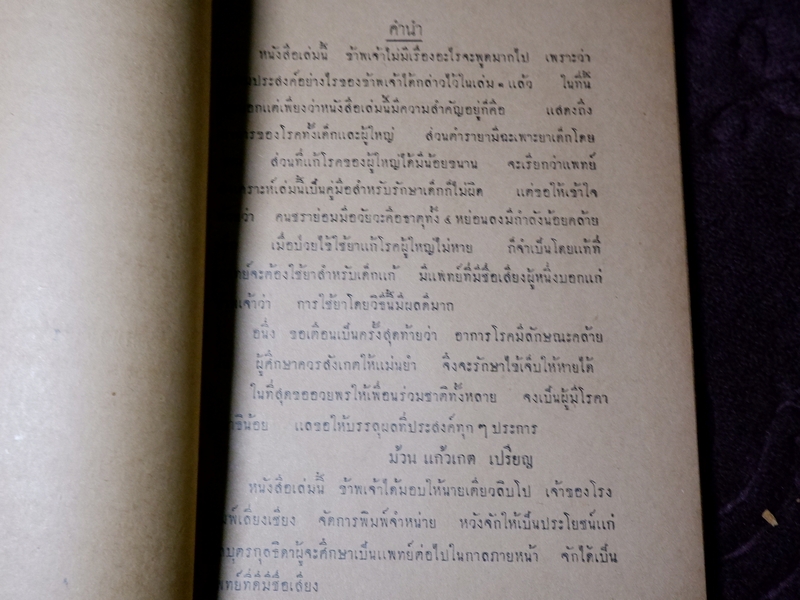 คำนำ
หนังสือเล่มนี้ ข้าพเจ้าไม่มีเรื่องอะไรจะพูดมากไป เพราะว่า
ประสงค์อย่างไรของข้าพเจ้าได้กล่าวไว้ในเล่ม ๑ แล้ว ในที่นี้
อกแต่เพียงว่าหนังสือเล่มนี้มีความสำคัญอยู่ก็คือ แสดงถึง
ารของโรคทั้งเด็กและผู้ใหญ่ ส่วนตำรายามีฉะเพาะยาเด็กโดย
ส่วนที่แก้โรคของผู้ใหญ่ได้มีน้อยขนาน จะเรียกว่าแพทย์
คราะห์เล่มนี้เป็นคู่มือสำหรับรักษาเด็กก็ไม่ผิด แต่ขอให้เข้าใจ
ว่า คนชราย่อมมีอวัยวะคือธาตุทั้ง ๔ หย่อนลงมีกำลังน้อยคล้าย
เมื่อป่วยไข้ใช้ยาแก้โรคผู้ใหญ่ไม่หาย ก็จำเป็นโดยแท้ที่
ย์จะต้องใช้ยาสำหรับเด็กแก้ มีแพทย์ที่มีชื่อเสียงผู้หนึ่งบอกแก่
เจ้าว่า การใช้ยาโดยวิธีนี้มีผลดีมาก
อนึ่ง ขอเตือนเป็นครั้งสุดท้ายว่า อาการโรคมีลักษณะคล้าย
ผู้ศึกษาควรสังเกตให้แม่นยำ จึงจะรักษาไข้เจ็บให้หายได้
ในที่สุดขออวยพรให้เพื่อนร่วมชาติทั้งหลาย จงเป็นผู้มีโรคา
ธิน้อย แลขอให้บรรลุผลที่ประสงค์ทุก ๆ ประการ
ม้วน แก้วเกต เปรียญ
หนังสือเล่มนี้ ข้าพเจ้าได้มอบให้นายเตียวลิบโป เจ้าของโรง
มพ์เสี่ยงเซียง จัดการพิมพ์จำหน่าย หวังจักให้เป็นประโยชน์แก่
บุตรกุลธิดาผู้จะศึกษาเป็นแพทย์ต่อไปในกาลภายหน้า จักได้เป็น
ทย์ที่ดีมีชื่อเสียง